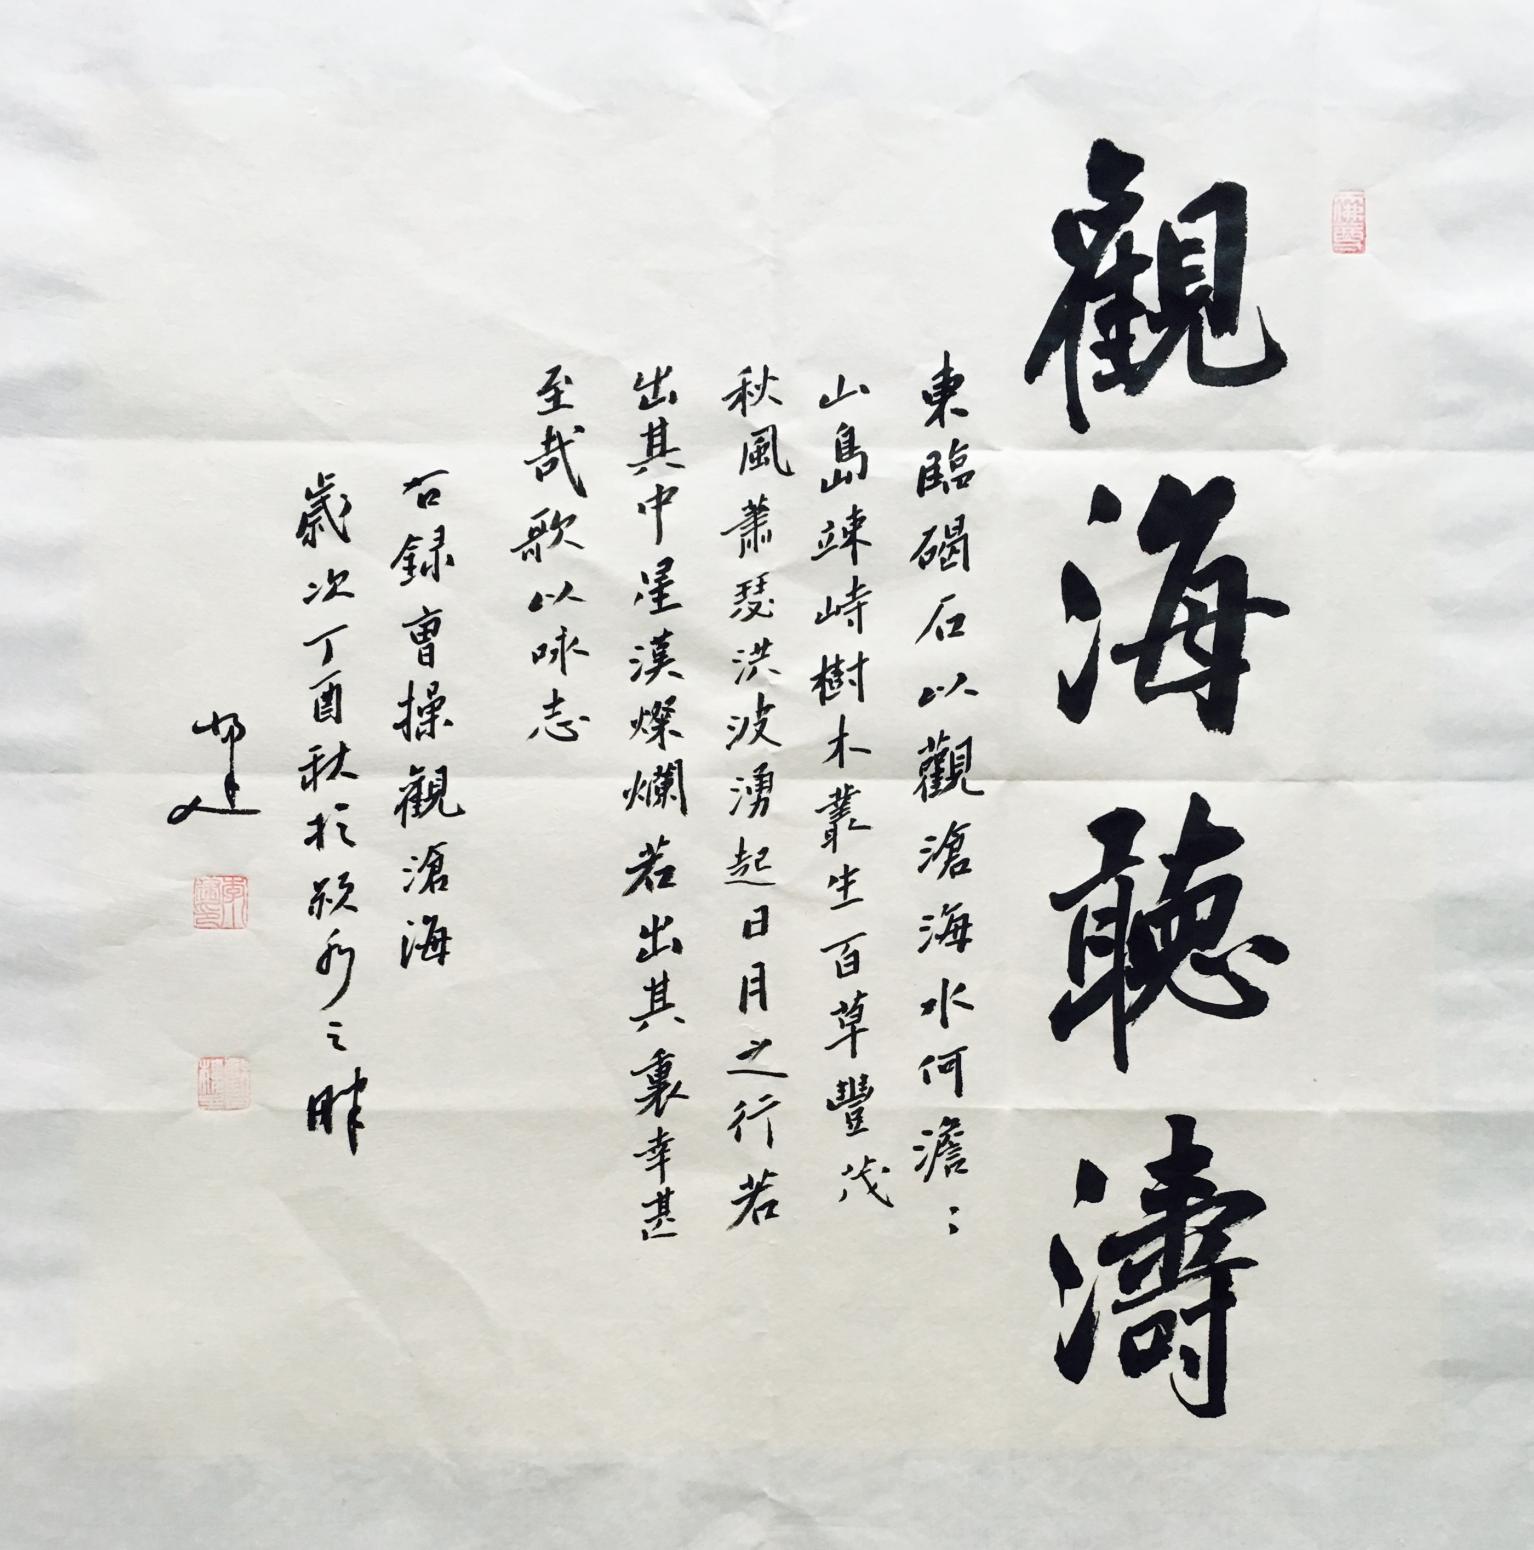 觀海聽濤
東臨碣石以觀滄海水何澹〻
山島竦峙樹木叢生百草豐茂
秋風蕭瑟洪波湧起日月之行若
出其中星漢燦爛若出其裏幸甚
至哉歌以咏志
右録曹操觀滄海
歲次丁酉秋於潁水之畔